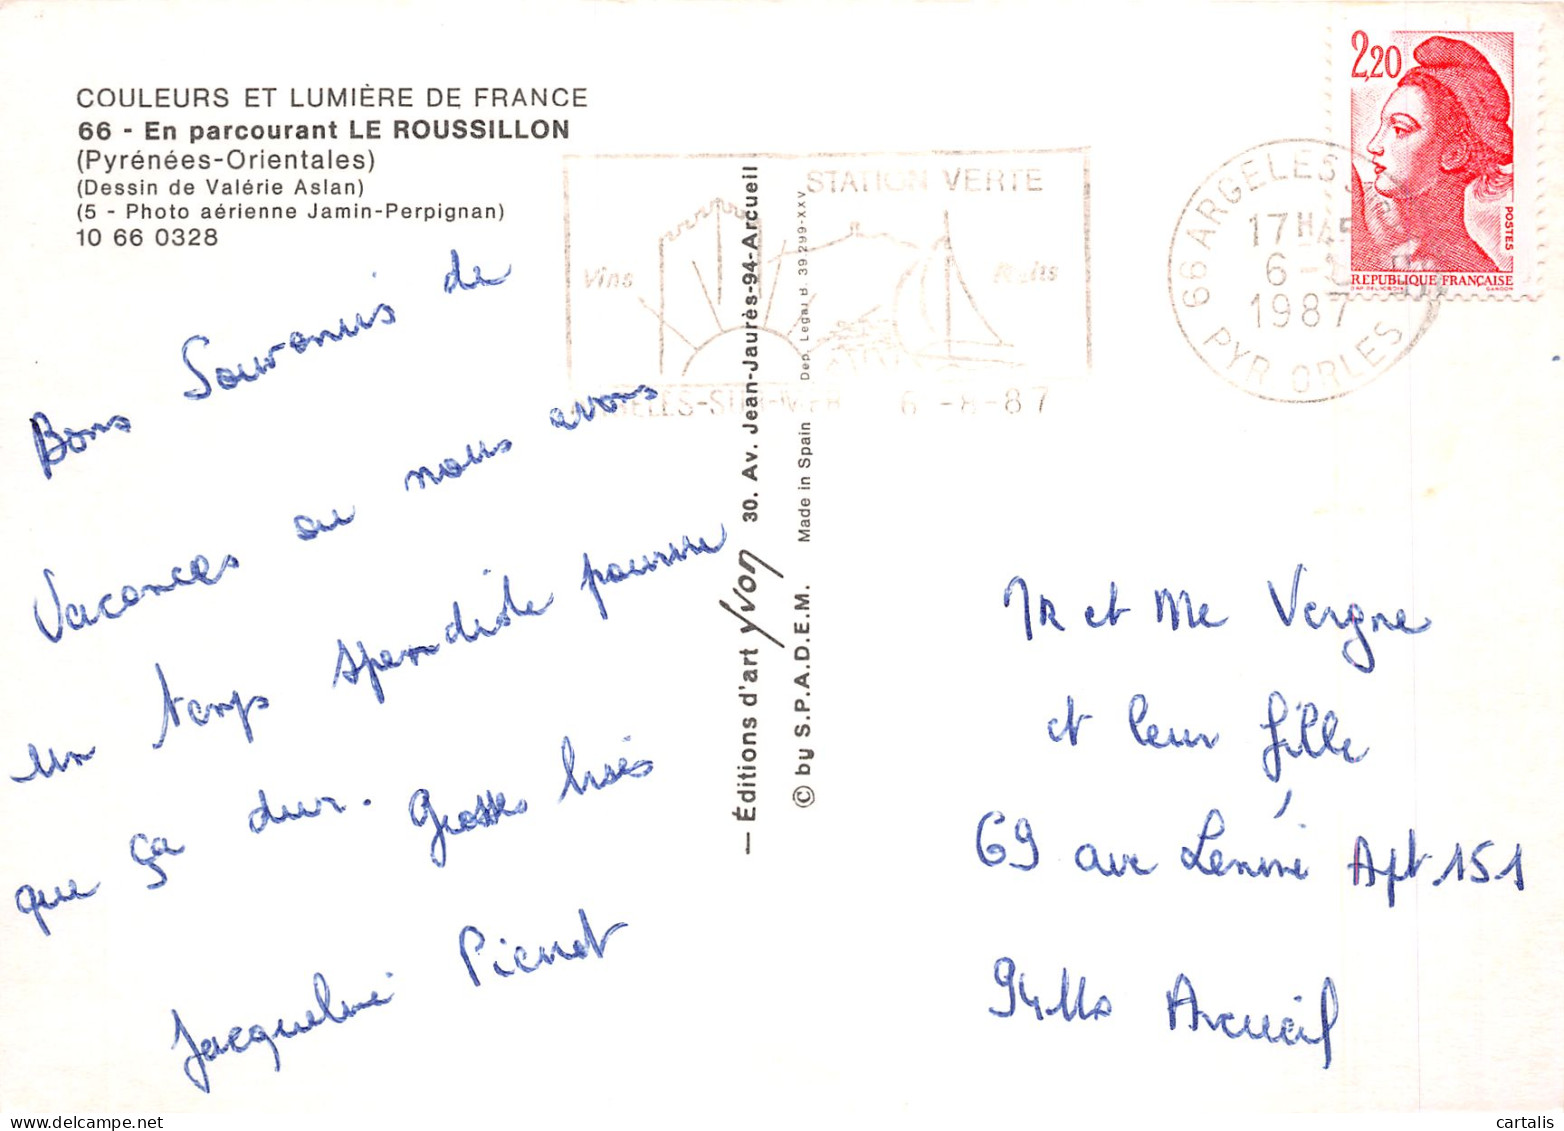 COULEURS ET LUMIÈRE DE FRANCE
66 - En parcourant LE ROUSSILLON
(Pyrénées-Orientales)
(Dessin de Valérie Aslan)
(5 - Photo aérienne Jamin-Perpignan)
10 66 0328
Bons Souvenirs de
Vacances ou nous avons
un temps spendide pourvu
que ça dur. Grosses bises
Jacqueline Pierrot
— Éditions d'art Yvon 30. Av. Jean-Jaurès-94-Arcueil
© by S.P.A.D.E.M. Made in Spain Dep. Legal B. 39.299-XXV
STATION VERTE
Vins
ARGELES-SUR-MER 6 -8-87
66 ARGELES
17H45
6 -
1987
PYR ORLES
2,20
POSTES
REPUBLIQUE FRANÇAISE
GANDON
Mr et Me Vergne
et leur fille
69 ave Lénine Apt.151
94110 Arcueil
cartalis